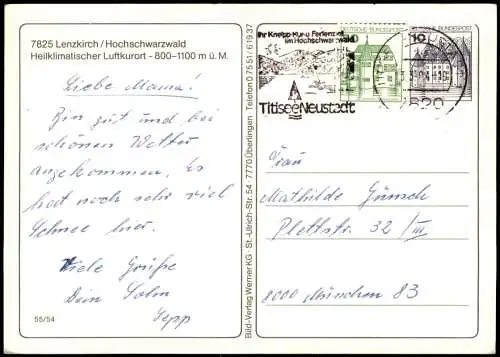 7825 Lenzkirch / Hochschwarzwald
Heilklimatischer Luftkurort - 800-1100 m ü. M.
Liebe Mama!
Bin gut und bei
schönem Wetter
angekommen. Es
hat noch sehr viel
Schnee hier.
Viele Grüße
Dein Sohn
Sepp
55/54
Bild-Verlag Werner KG · St.-Ulrich-Str. 54 · 7770 Überlingen · Telefon 0 75 51 / 6 19 37
Ihr Kneipp-Kur-u. Ferienziel
im Hochschwarzwald
Titisee Neustadt
DEUTSCHE BUNDESPOST
10
DEUTSCHE BUNDESPOST
7820
Frau
Mathilde Günsch
Plettstr. 32/III
8000 München 83